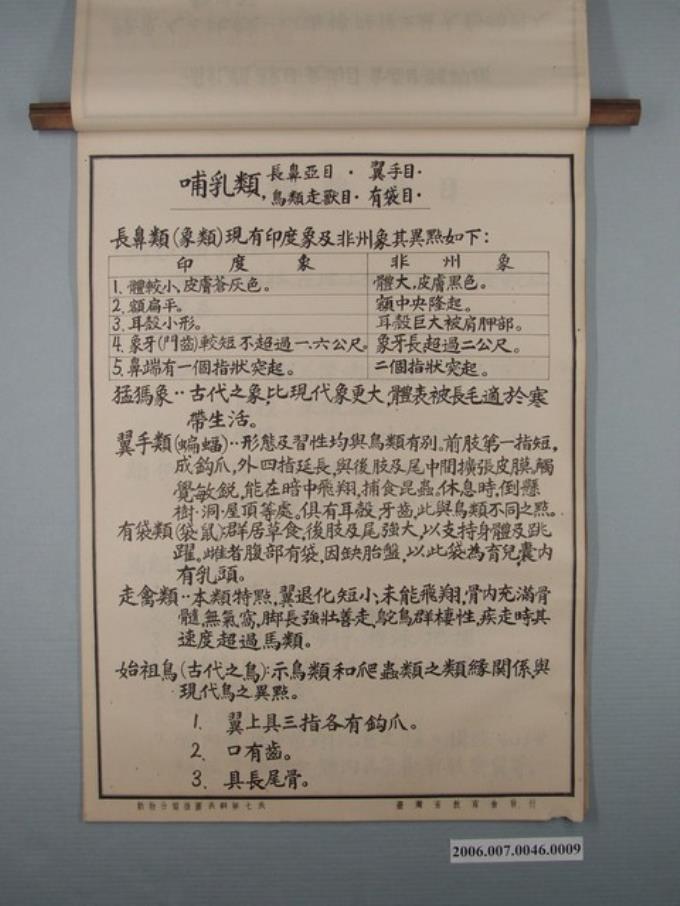 哺乳類, 長鼻亞目· 翼手目·
鳥類走獸目· 有袋目·
長鼻類(象類)現有印度象及非州象其異點如下:
印度象 非州象
1. 體較小、皮膚蒼灰色。 體大,皮膚黑色。
2. 額扁平。 額中央隆起。
3. 耳殼小形。 耳殼巨大被肩胛部。
4. 象牙(門齒)較短不超過一、六公尺。 象牙長超過二公尺。
5. 鼻端有一個指狀突起。 二個指狀突起。
猛獁象··古代之象,比現代象更大,體表被長毛適於寒
帶生活。
翼手類(蝙蝠)··形態及習性均與鳥類有別。前肢第一指短,
成鈎爪,外四指延長,與後肢及尾中間擴張皮膜,觸
覺敏銳,能在暗中飛翔,捕食昆蟲。休息時,倒懸
樹·洞·屋頂等處。俱有耳殼,牙齒,此與鳥類不同之點。
有袋類(袋鼠):群居草食,後肢及尾強大,以支持身體及跳
躍。雌者腹部有袋,因缺胎盤,以此袋為育兒,囊內
有乳頭。
走禽類··本類特點,翼退化短小,未能飛翔,骨內充滿骨
髓,無氣窩,脚長強壯善走,鴕鳥群棲性,疾走時其
速度超過馬類。
始祖鳥(古代之鳥):示鳥類和爬蟲類之類緣關係與
現代鳥之異點。
1. 翼上具三指各有鈎爪。
2. 口有齒。
3. 具長尾骨。
動物分類掛圖 第七
臺灣省教育會發行
2006.007.0046.0009